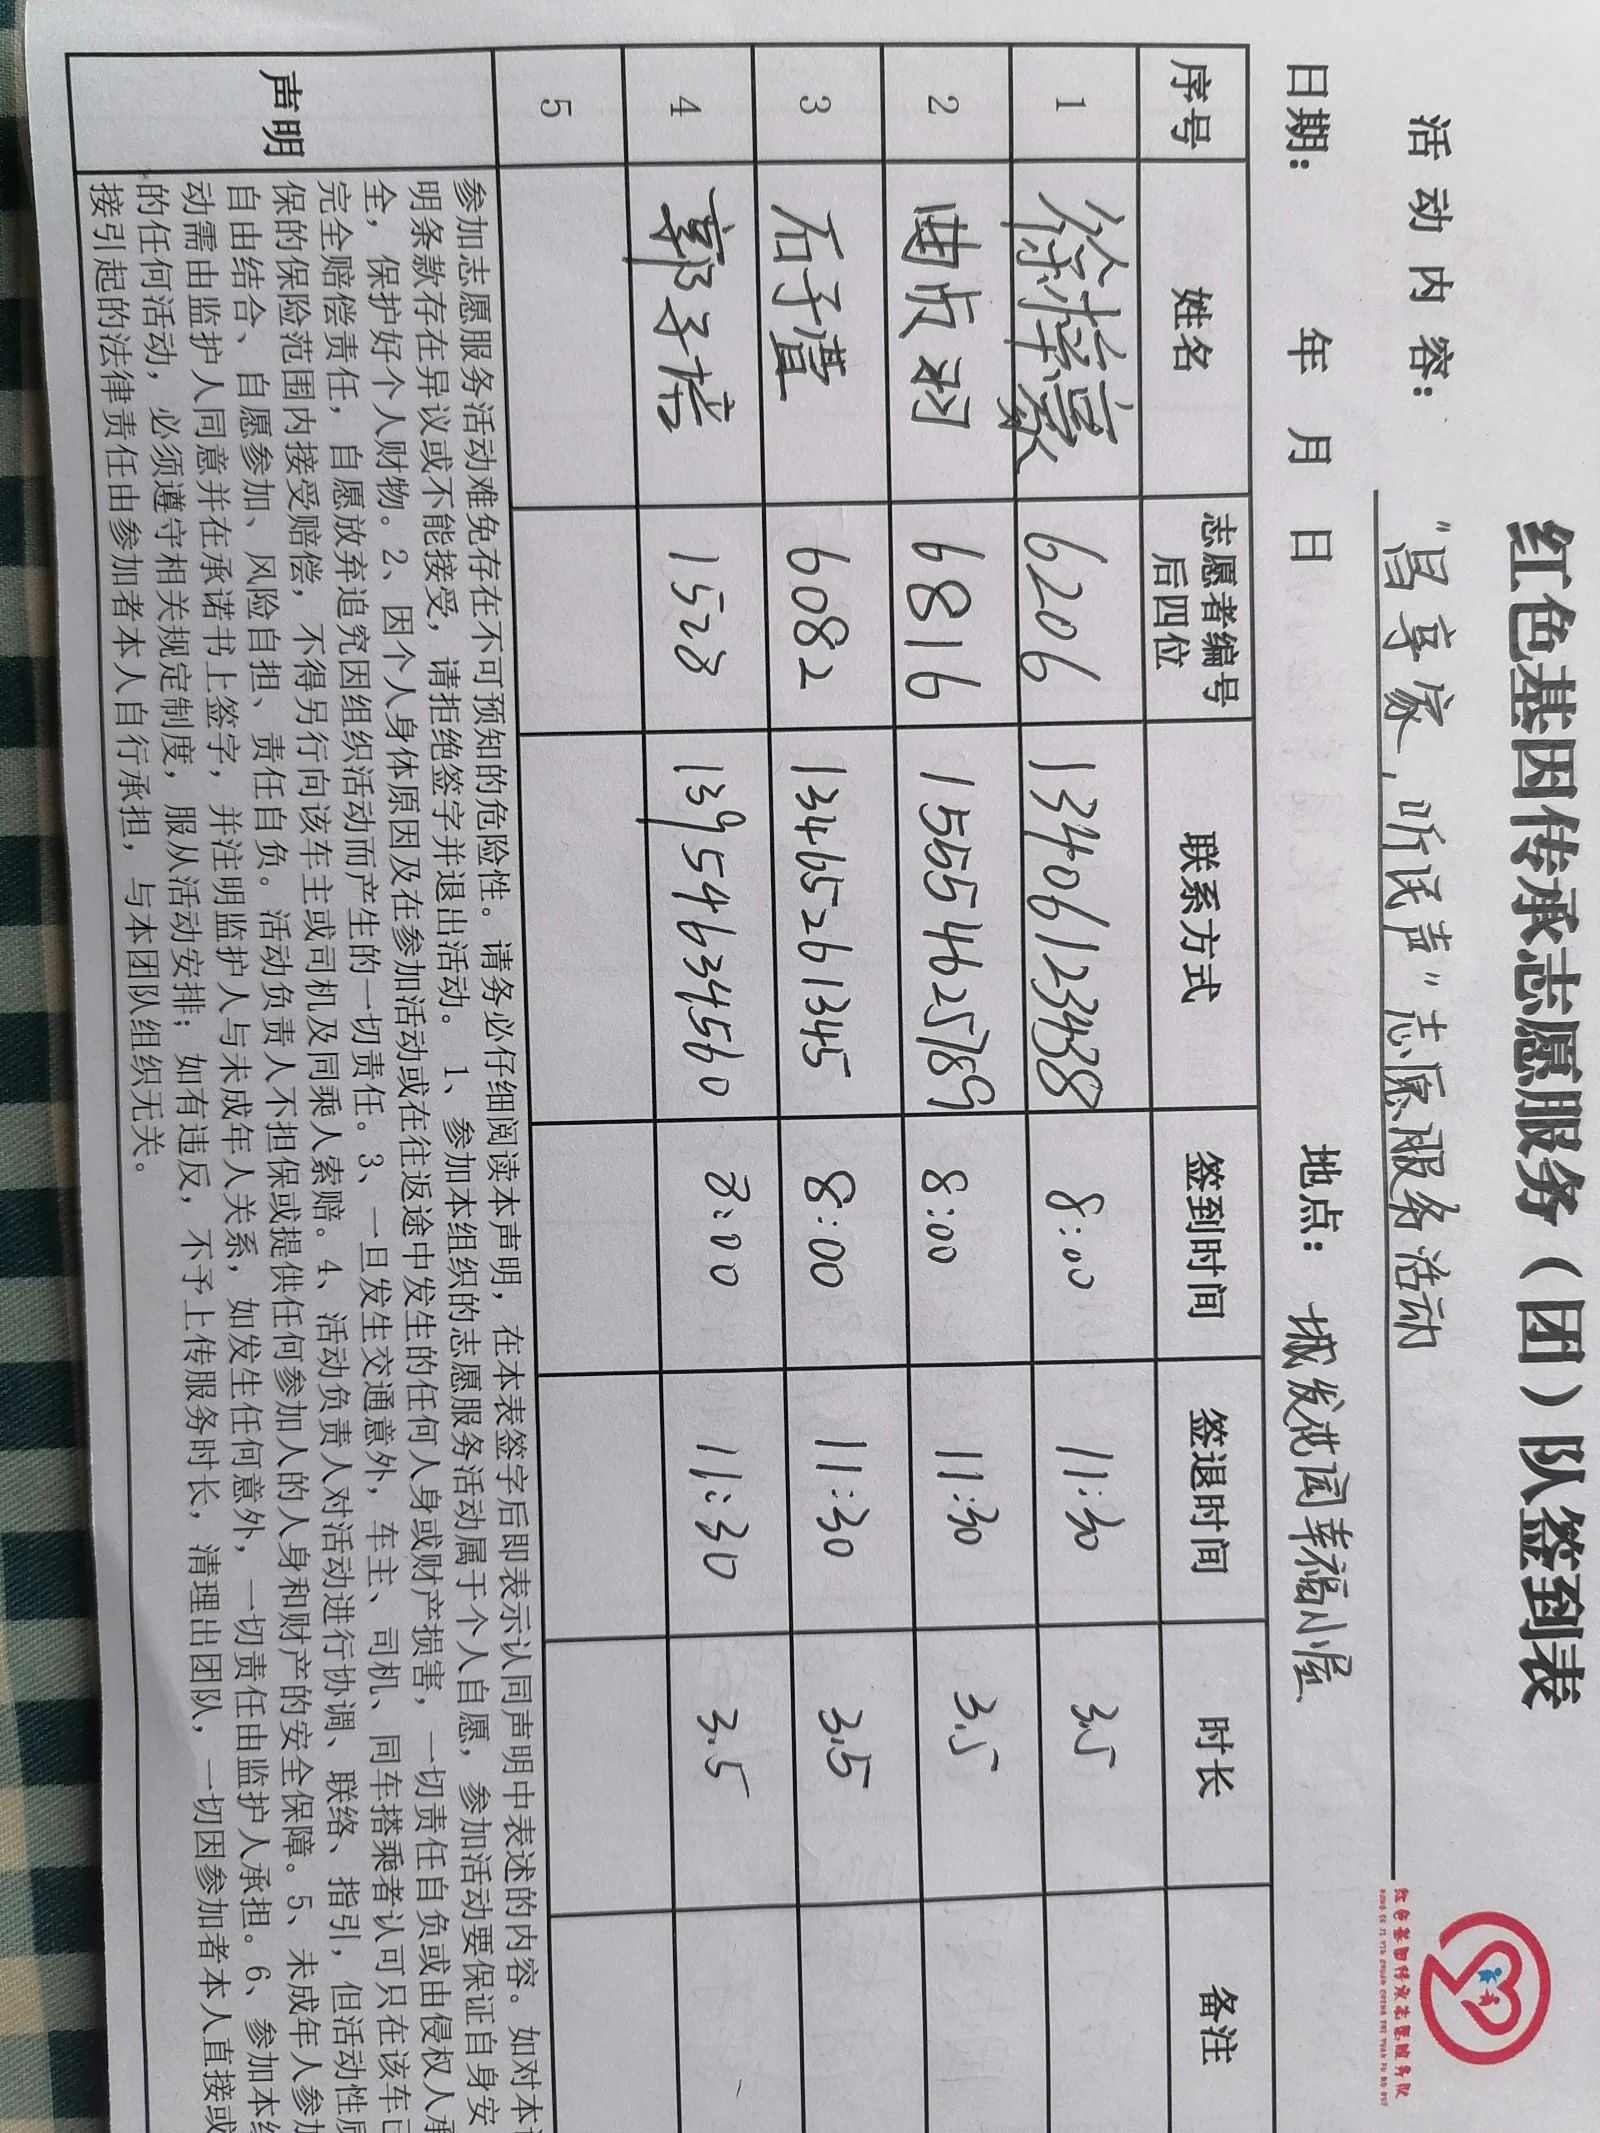 红色基因传承志愿服务（团）队签到表
红色基因传承志愿服务队
活动内容： "昌享家，听民声"志愿服务活动
日期： 年 月 日 地点： 城发花园幸福小屋
序号 姓名 志愿者编号后四位 联系方式 签到时间 签退时间 时长 备注
1 6206 13406123438 8:00 11:30 3.5
2 曲贞羽 6816 15554625789 8:00 11:30 3.5
3 石子萱 6082 13465261345 8:00 11:30 3.5
4 郭子培 1528 13954634560 8:00 11:30 3.5
5
声明
参加志愿服务活动难免存在不可预知的危险性。请务必仔细阅读本声明，在本表签字后即表示认同声明中表述的内容。如对本
明条款存在异议或不能接受，请拒绝签字并退出活动。1、参加本组织的志愿服务活动属于个人自愿，参加活动要保证自身安
全，保护好个人财物。2、因个人身体原因及在参加活动或在往返途中发生的任何人身或财产损害，一切责任自负或由侵权人承
完全赔偿责任，自愿放弃追究因组织活动而产生的一切责任。3、一旦发生交通意外，车主、司机、同车搭乘者认可只在该车已
保的保险范围内接受赔偿，不得另行向该车主或司机及同乘人索赔。4、活动负责人对活动进行协调、联络、指引，但活动性质
自由结合、自愿参加、风险自担、责任自负。活动负责人不担保或提供任何参加人的人身和财产的安全保障。5、未成年人参加
动需由监护人同意并在承诺书上签字，并注明监护人与未成年人关系，如发生任何意外，一切责任由监护人承担。6、参加本组
的任何活动，必须遵守相关规定制度，服从活动安排；如有违反，不予上传服务时长，清理出团队，一切因参加者本人直接或
接引起的法律责任由参加者本人自行承担，与本团队组织无关。